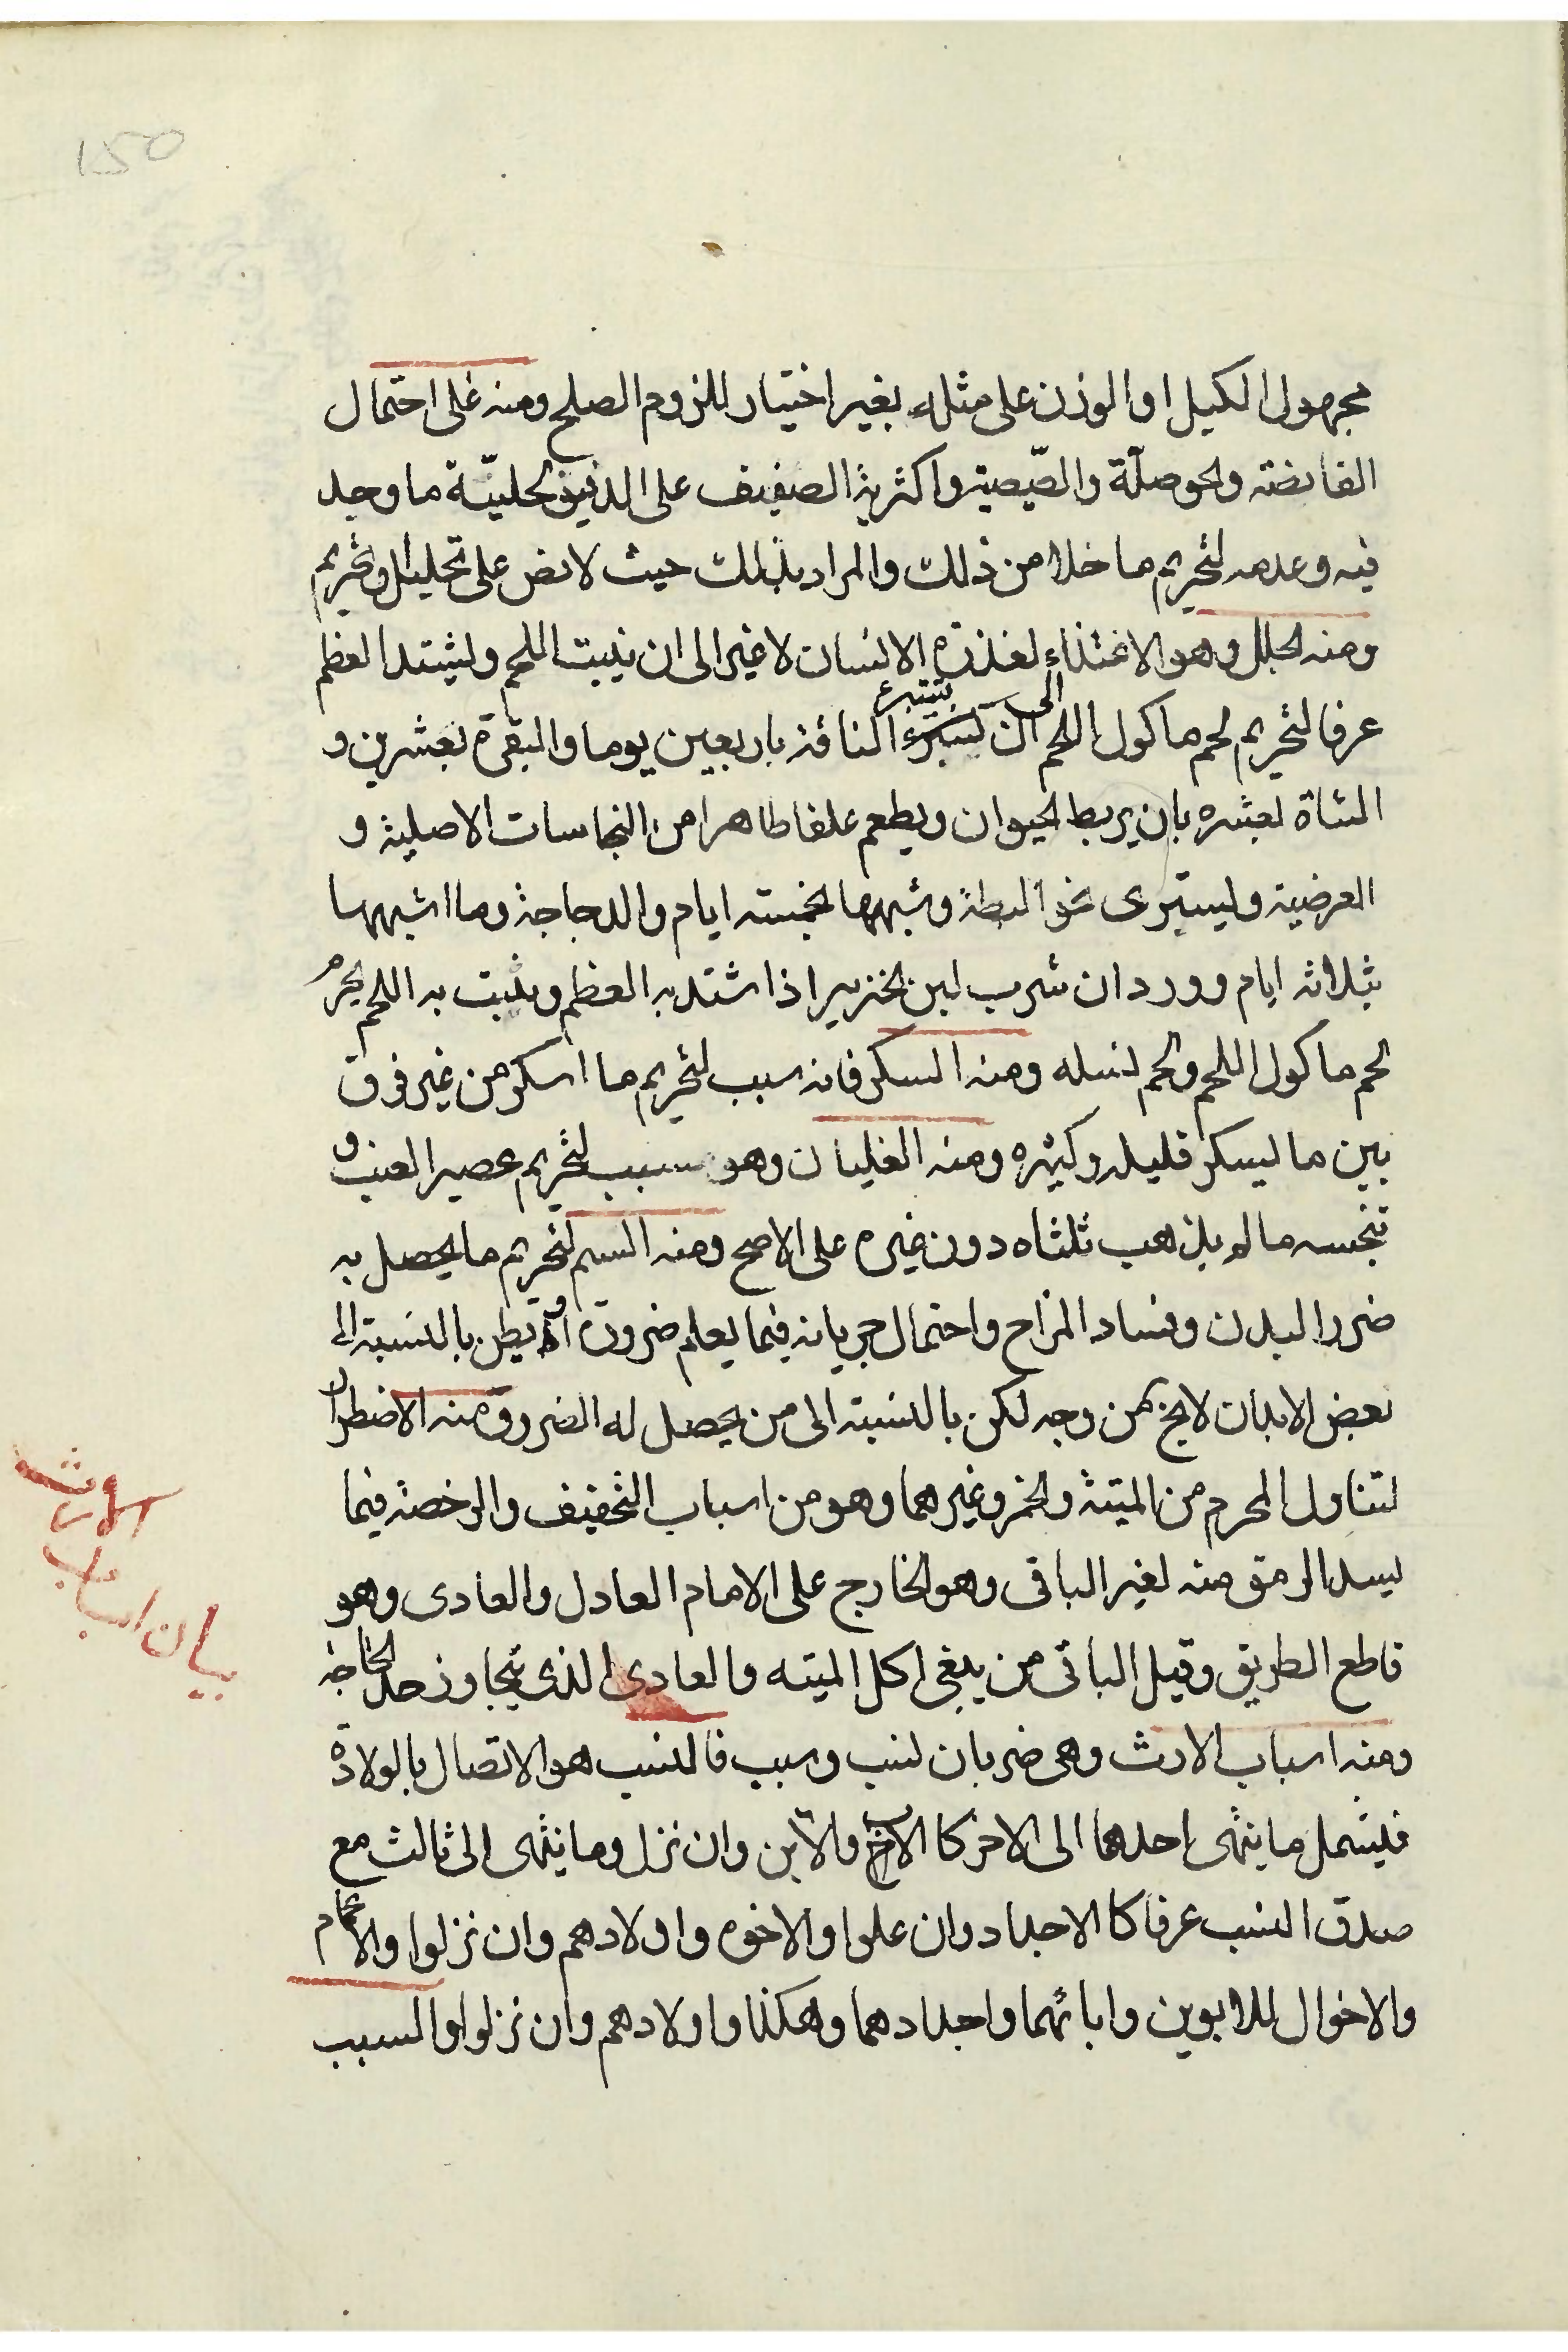 150
مجهول الكيل او الوزن على مثله بغير اختيار للزوم الصلح ومنه على احتمال
القانصة والحوصلة والصّيصية واكثرية الصفيف على الدفيف لحليّة ما وجد
فيه وعدمه لتحريم ما خلا من ذلك والمراد بذلك حيث لا نص على تحليل وتحريم
ومنه الجلل وهو الاغتذاء لعذرة الانسان لا غير الى ان ينبت اللحم ويشتد العظم
عرفا لتحريم لحم ماكول اللحم الى ان تستبرء الناقة باربعين يوما والبقرة بعشرين و
الشاة بعشره بان يربط الحيوان ويطعم علفا طاهرا من النجاسات الاصلية و
العرضية ويستبرى نحو البطة وشبهها بخمسة ايام والدجاجة وما اشبهها
بثلاثه ايام وورد ان شرب لبن الخنزير اذا اشتد به العظم وينبت به اللحم يحرم
لحم ماكول اللحم ولحم نسله ومنه السكر فانه سبب لتحريم ما اسكر من غير فرق
بين ما يسكر قليله وكثيره ومنه الغليان وهو سبب لتحريم عصير العنب و
تنجسه ما لم يذهب ثلثاه دون غيره على الاصح ومنه السم لتحريم ما يحصل به
ضرر البدن وفساد المزاح واحتمال جريانه فيما يعلم ضروره او يظن بالنسبة الى
بعض الابدان لا يخ من وجه لكن بالنسبة الى من يحصل له الضرر ومنه الاضطرار
لتناول المحرم من الميتة والخمر وغيرهما وهو من اسباب التخفيف والرخصة فيما
يسد الرمق منه لغير الباقى وهو الخارج على الامام العادل والعادى وهو
قاطع الطريق وقيل الباقى من يبغى اكل الميته والعادى الذى يتجاوز حد الحاجة
ومنه اسباب الارث وهى ضربان نسب وسبب فالنسب هو الاتصال بالولادة
فيشمل ما ينتهى احدهما الى الاخر كا الاب والابن وان نزل وما ينتهى الى ثالث مع
صدق النسب عرفا كا الاجداد وان علوا والاخوه واولادهم وان نزلوا والاعمام
والاخوال للابوين وابائهما واجدادهما وهكذا واولادهم وان نزلوا والسبب
بيان اسباب
الارث